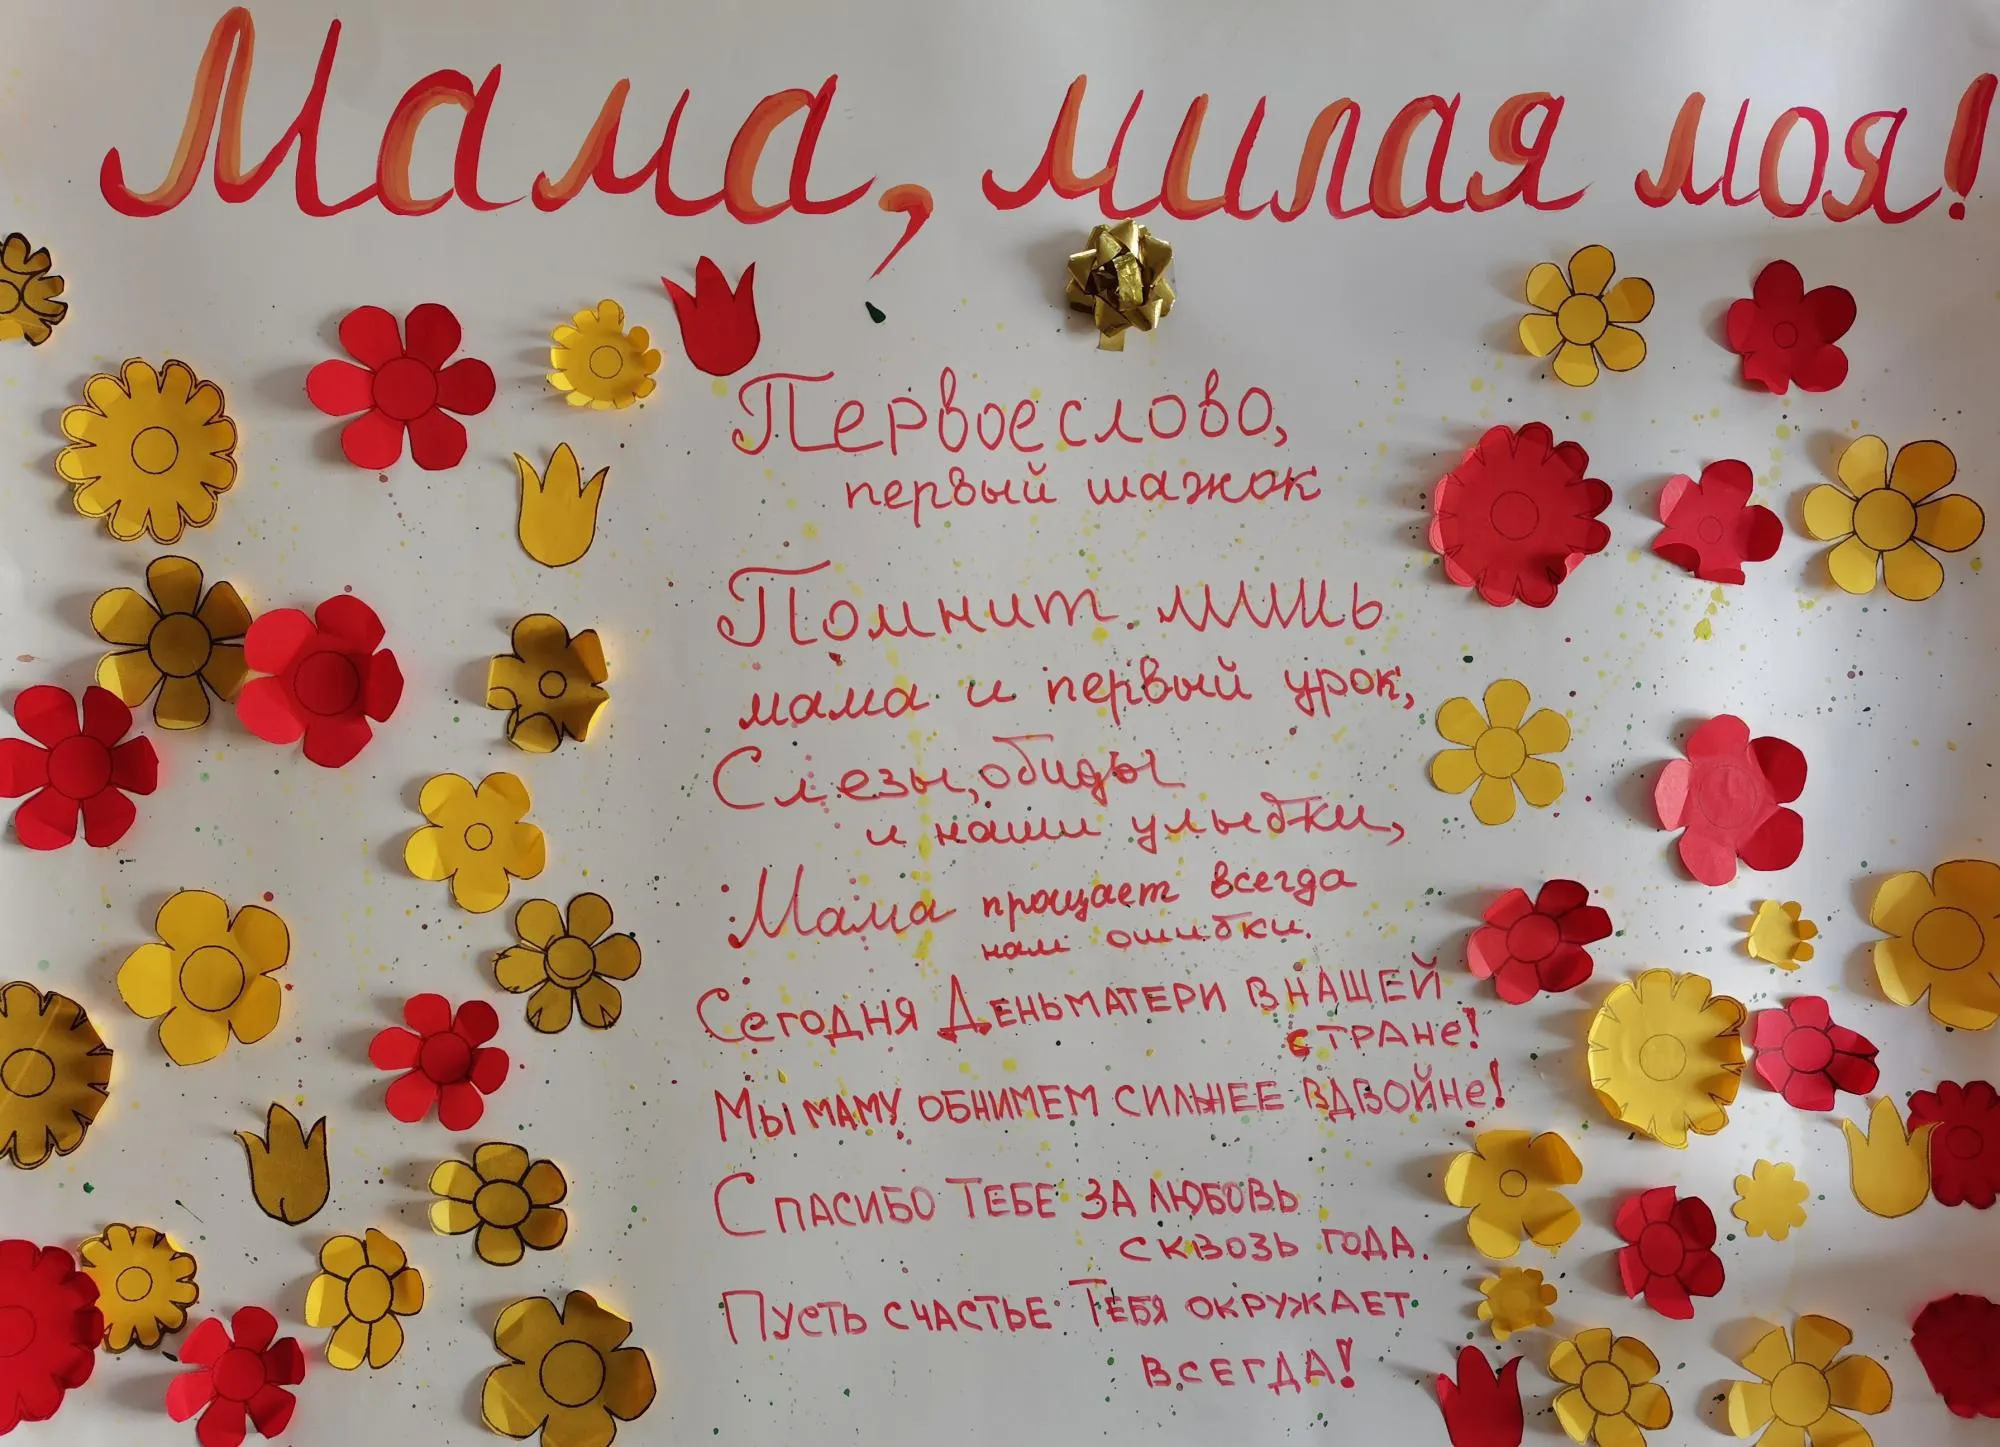 Мама, милая моя!
Первое слово,
первый шажок
Помнит лишь
мама и первый урок,
Слезы, обиды
и наши улыбки,
Мама прощает всегда
нам ошибки.
Сегодня День матери в нашей
стране!
Мы маму обнимем сильнее вдвойне!
Спасибо Тебе за любовь
сквозь года.
Пусть счастье Тебя окружает
всегда!